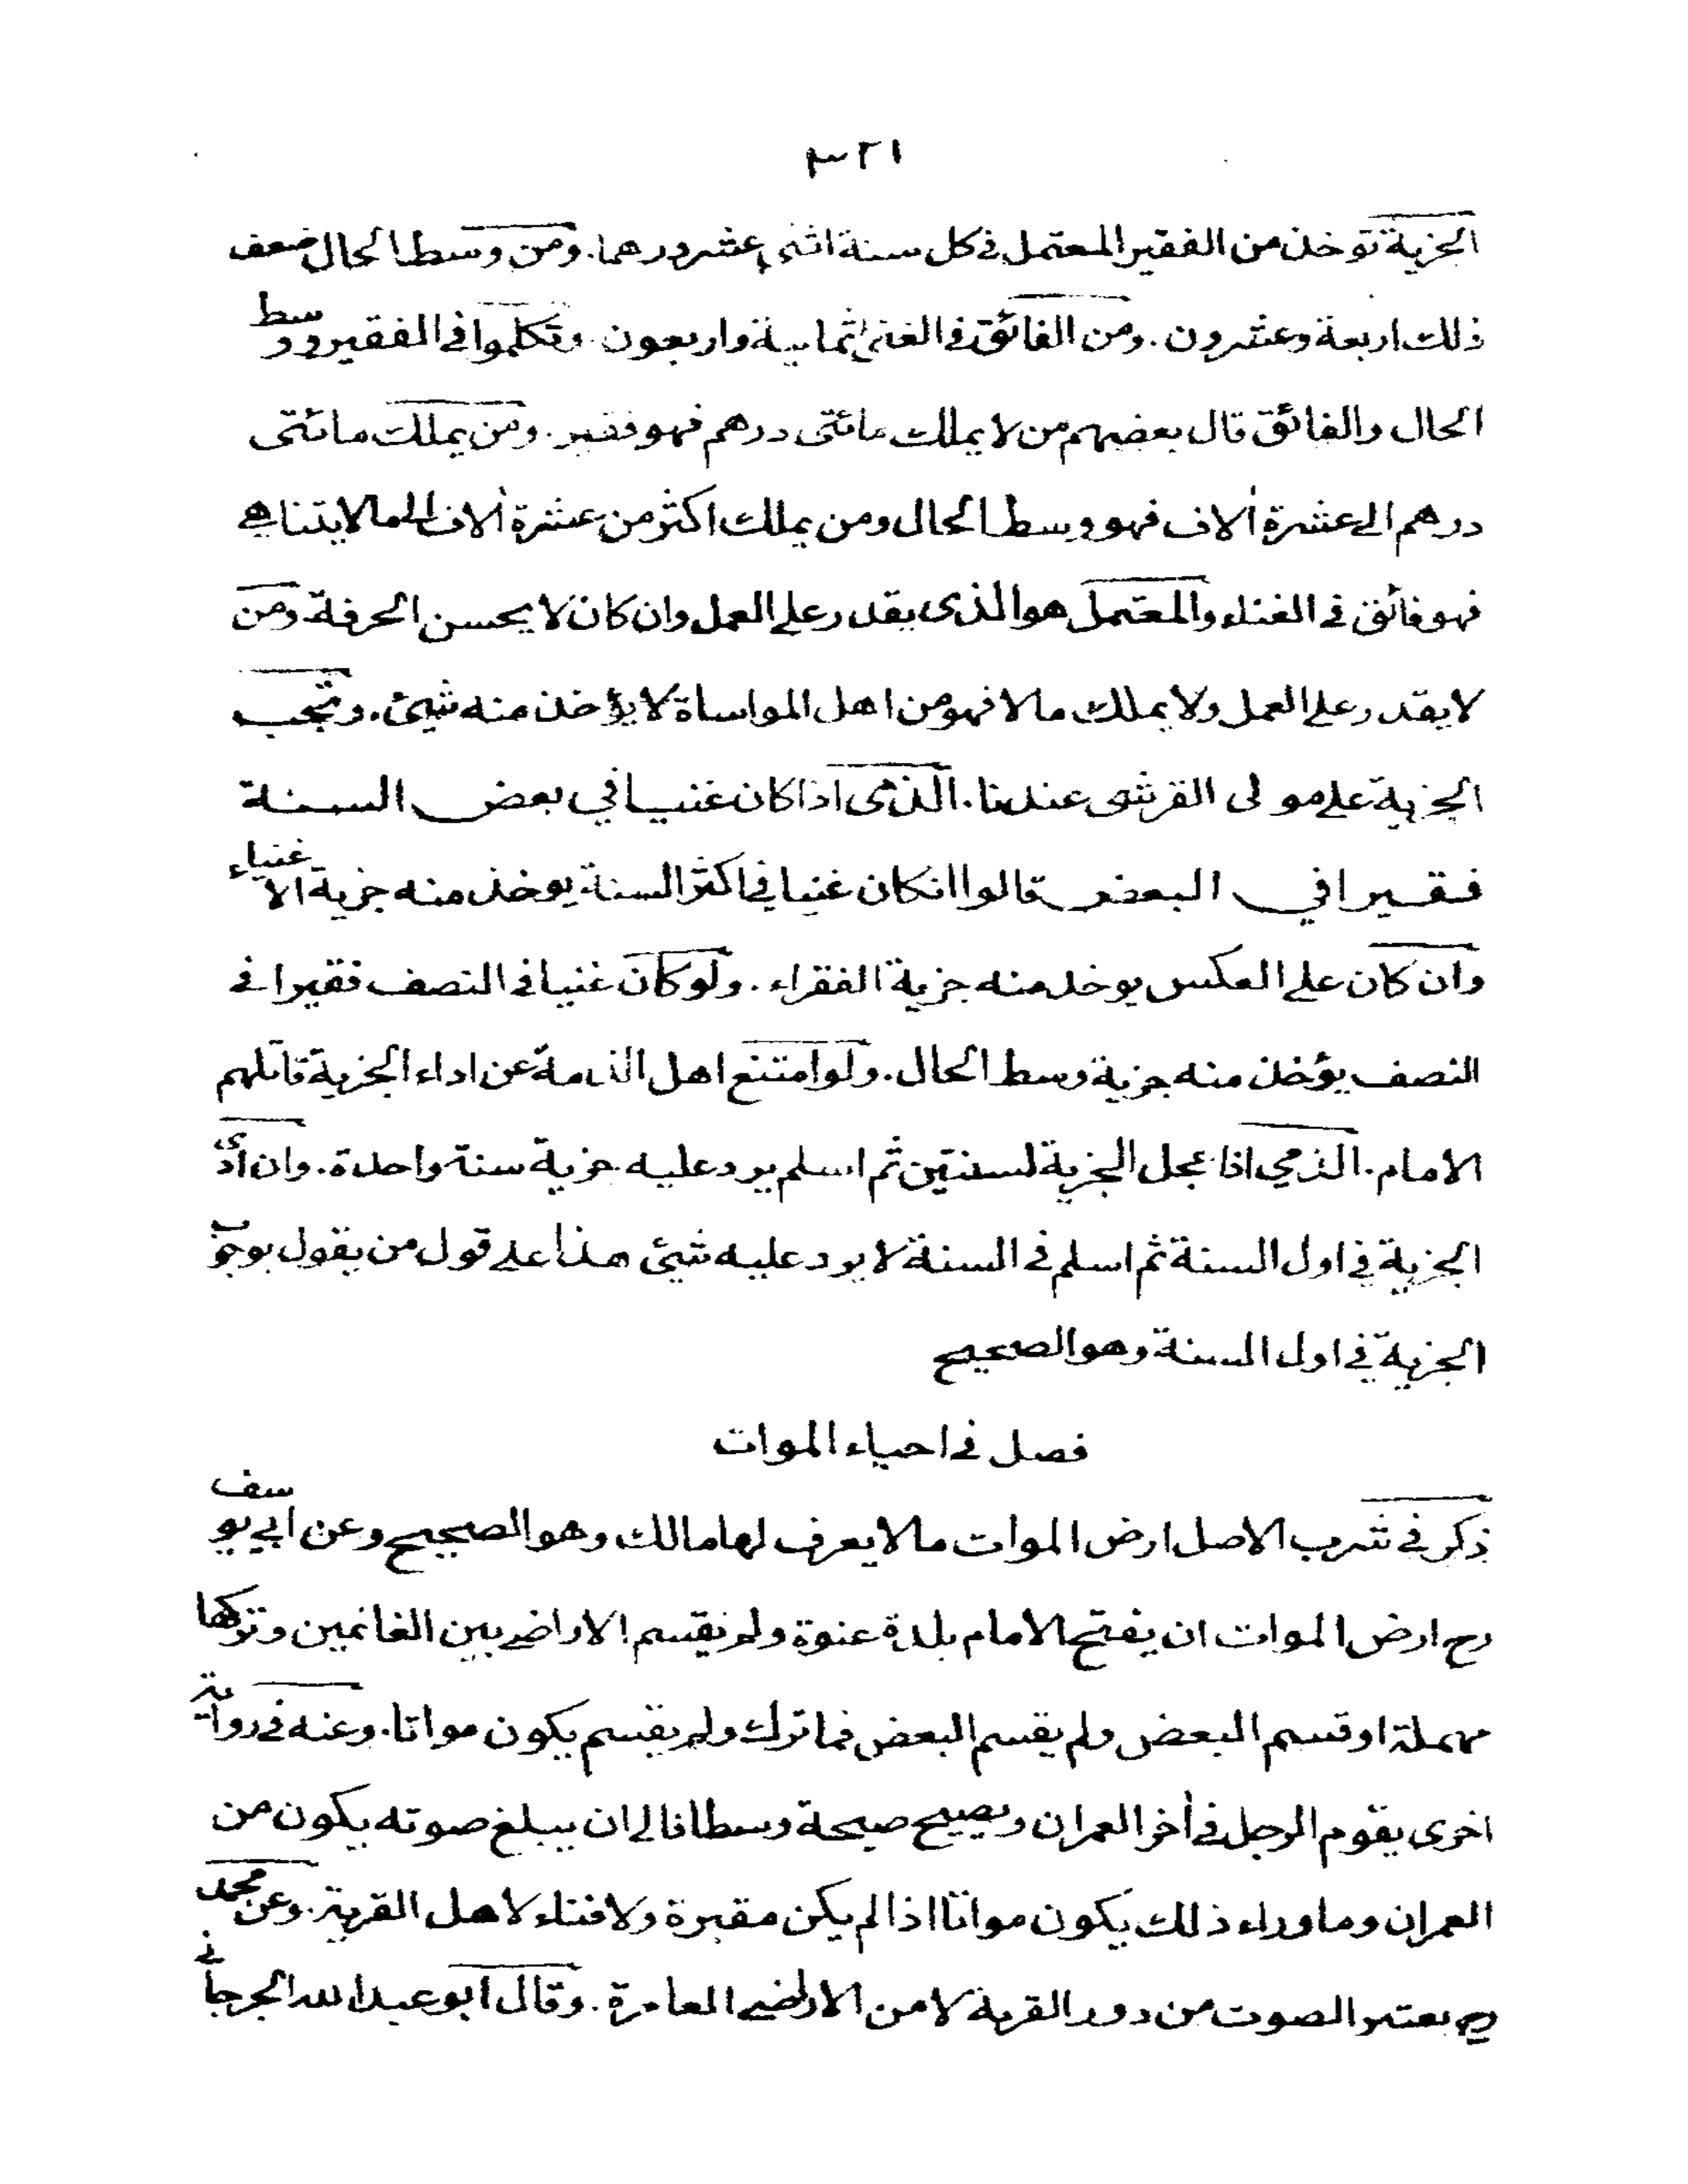 ١٢٣
الجزية توخذ من الفقير المعتمل في كل سنة اثنى عشر درهما. ومن وسط الحال ضعف
ذلك اربعة وعشرون. ومن الفائق في الغنى ثمانية واربعون. وتكلموا في الفقير ووسط
الحال والفائق قال بعضهم من لا يملك مائتى درهم فهو فقير. ومن يملك مائتى
درهم الى عشرة ألاف فهو وسط الحال ومن يملك اكثر من عشرة ألاف الى ما لا يتناهى
فهو فائق في الغناء والمعتمل هو الذى يقدر على العمل وان كان لا يحسن الحرفة. ومن
لا يقدر على العمل ولا يملك مالا فهو من اهل المواساة لا يؤخذ منه شيئ. وتجب
الجزية على مولى القرشى عندنا. الذمى اذا كان غنيا في بعض السنة
فقيرا في البعض قالوا انكان غنيا في اكثر السنة يوخذ منه جزية الاغنياء
وان كان على العكس يوخذ منه جزية الفقراء. ولو كان غنيا في النصف فقيرا في
النصف يؤخذ منه جزية وسط الحال. ولو امتنع اهل الذمة عن اداء الجزية قاتلهم
الامام. الذمي اذا عجل الجزية لسنتين ثم اسلم يرد عليه جزية سنة واحدة. وان أدى
الجزية في اول السنة ثم اسلم في السنة لا يرد عليه شيئ هذا على قول من يقول بوجوب
الجزية في اول السنة وهو الصحيح
فصل في احياء الموات
ذكر في شرب الاصل ارض الموات ما لا يعرف لها مالك وهو الصحيح وعن ابي يوسف
رح ارض الموات ان يفتح الامام بلدة عنوة ولم يقسم الاراضي بين الغانمين وتركها
مهملة او قسم البعض ولم يقسم البعض فما ترك ولم يقسم يكون مواتا. وعنه في رواية
اخرى يقوم الرجل في أخر العمران ويصيح صيحة وسطا فالى ان يبلغ صوته يكون من
العمران وما وراء ذلك يكون مواتا اذا لم يكن مقبرة ولا فناء لاهل القرية. وعن محمد
رح يعتبر الصوت من دور القرية لا من الاراضي العامرة. وقال ابو عبد الله الجرجاني